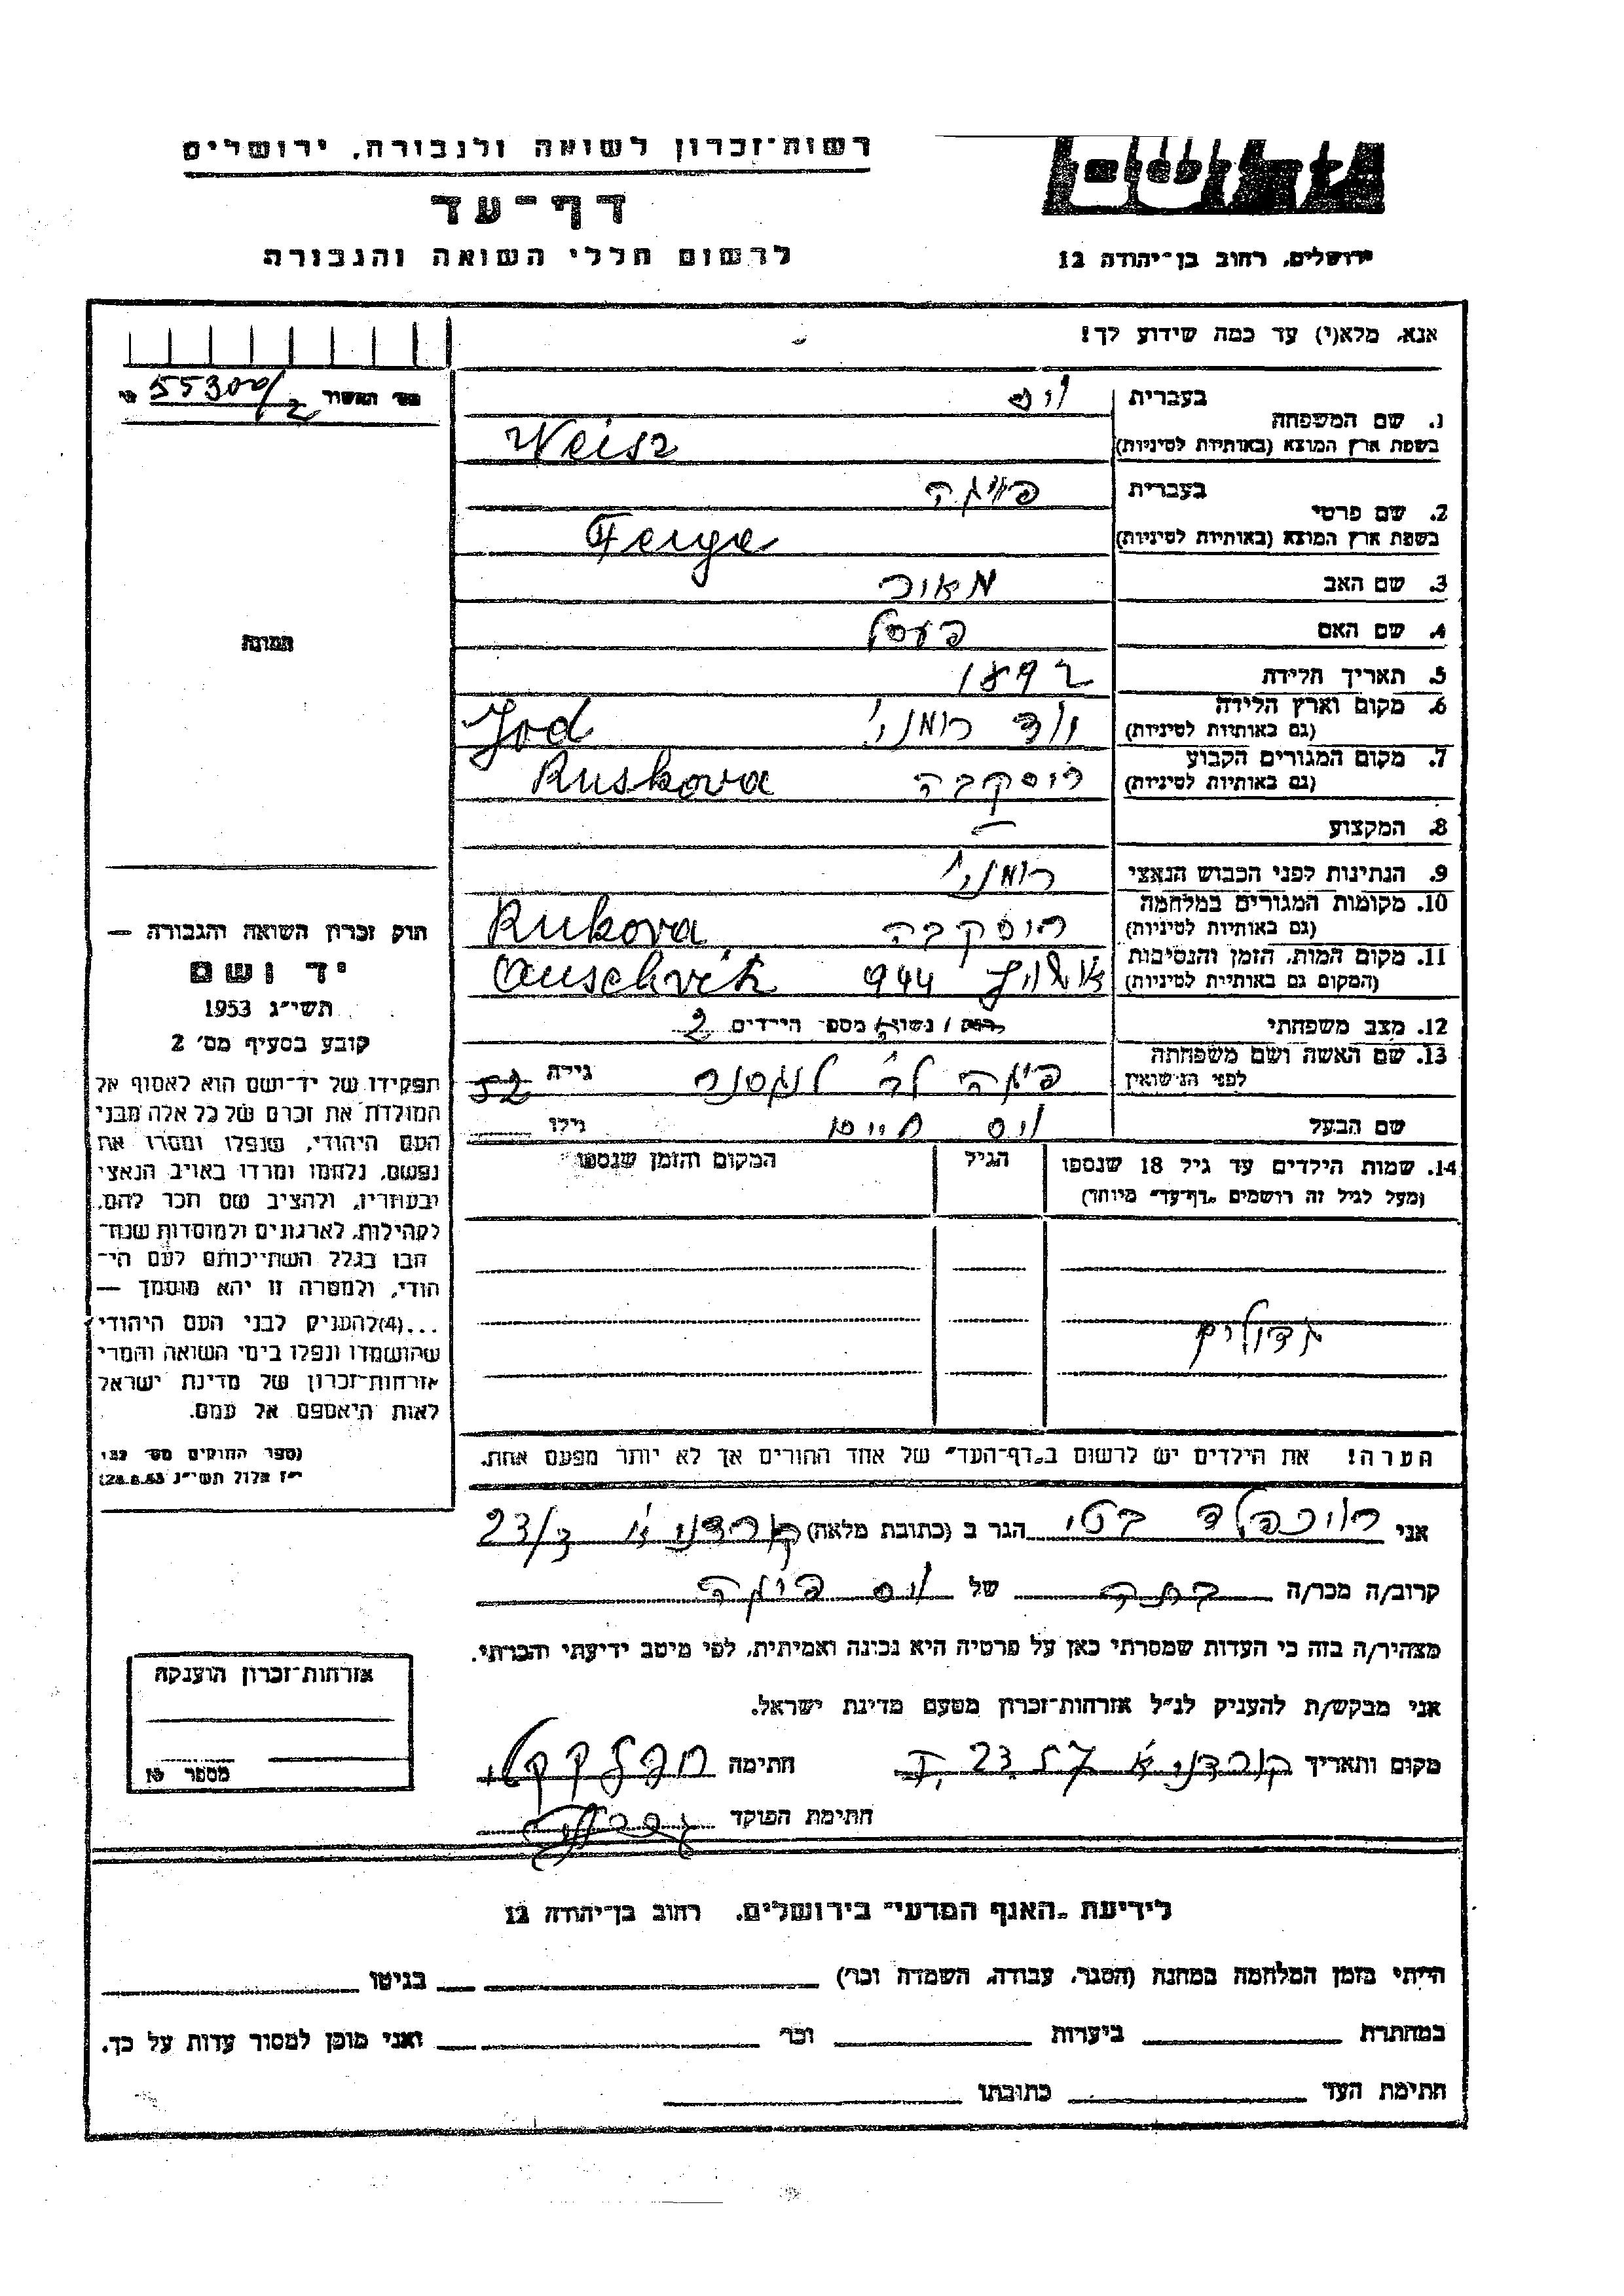 רשות־זכרון לשואה ולגבורה, ירושלים
דף־עד
לרשום חללי השואה והגבורה
ירושלים, רחוב בן־יהודה 12
אנא, מלא(י) עד כמה שידוע לך!
מס' האשור 55300/2
1. שם המשפחה
בעברית וים
בשפת ארץ המוצא (באותיות לטיניות) Weisz
2. שם פרטי
בעברית פייגה
בשפת ארץ המוצא (באותיות לטיניות) Feige
3. שם האב מאור
4. שם האם
5. תאריך הלידה 1892
6. מקום וארץ הלידה
(גם באותיות לטיניות) רומני' Jod
7. מקום המגורים הקבוע
(גם באותיות לטיניות) רוסקבה Ruskova
8. המקצוע —
9. הנתינות לפני הכבוש הנאצי רומני'
10. מקומות המגורים במלחמה
(גם באותיות לטיניות) רוסקבה Rukova
11. מקום המות, הזמן והנסיבות
(המקום גם באותיות לטיניות) 944 Auschvitz
12. מצב משפחתי רווק / נשוי/אה מספר הילדים 2
13. שם האשה ושם משפחתה
לפני הנישואין פיגה גילה 52
שם הבעל וים חיים גילו
14. שמות הילדים עד גיל 18 שנספו
(מעל לגיל זה רושמים „דף־עד" מיוחד)
הגיל
המקום והזמן שנספו
גדולים
הערה! את הילדים יש לרשום ב„דף־העד" של אחד ההורים אך לא יותר מפעם אחת.
תמונה
חוק זכרון השואה והגבורה —
יד ושם
תשי"ג 1953
קובע בסעיף מס' 2
תפקידו של יד־ושם הוא לאסוף אל
המולדת את זכרם של כל אלה מבני
העם היהודי, שנפלו ומסרו את
נפשם, נלחמו ומרדו באויב הנאצי
ובעוזריו, ולהציב שם וזכר להם,
לקהילות, לארגונים ולמוסדות שנח־
רבו בגלל השתייכותם לעם הי־
הודי, ולמטרה זו יהא מוסמך —
...(4)להעניק לבני העם היהודי
שהושמדו ונפלו בימי השואה והמרי
אזרחות־זכרון של מדינת ישראל
לאות היאספם אל עמם.
(ספר החוקים מס' 132
י"ז אלול תשי"ג 28.8.53)
אני בטי הגר ב (כתובת מלאה) 23/
קרוב/ה מכר/ה בתה של וים פיגה
מצהיר/ה בזה כי העדות שמסרתי כאן על פרטיה היא נכונה ואמיתית, לפי מיטב ידיעתי והכרתי.
אני מבקש/ת להעניק לנ"ל אזרחות־זכרון מטעם מדינת ישראל.
מקום ותאריך 23. חתימה
חתימת הפוקד
אזרחות־זכרון הוענקה
מספר
לידיעת „האגף המדעי" בירושלים, רחוב בן־יהודה 12
הייתי בזמן המלחמה במחנה (הסגר, עבודה, השמדה וכו') בגיטו
במחתרת ביערות וכו' ואני מוכן למסור עדות על כך.
חתימת העד כתובתו